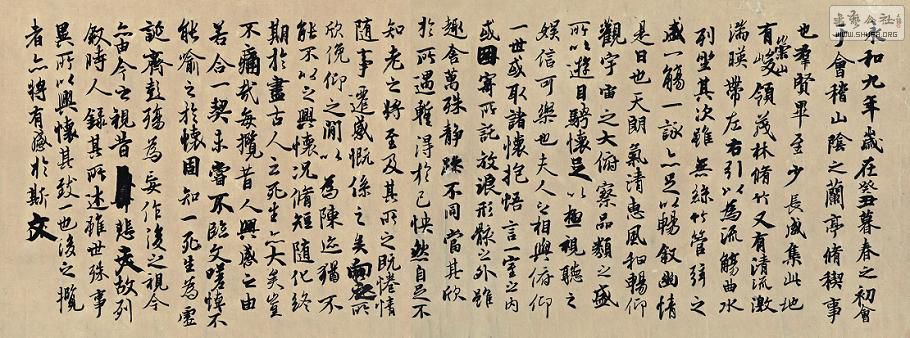 永和九年歲在癸丑暮春之初會
于會稽山陰之蘭亭脩稧事
也羣賢畢至少長咸集此地
有崇山峻領茂林脩竹又有清流激
湍暎帶左右引以為流觴曲水
列坐其次雖無絲竹管弦之
盛一觴一詠亦足以暢敘幽情
是日也天朗氣清惠風和暢仰
觀宇宙之大俯察品類之盛
所以遊目騁懷足以極視聽之
娛信可樂也夫人之相與俯仰
一世或取諸懷抱悟言一室之內
或因寄所託放浪形骸之外雖
趣舍萬殊靜躁不同當其欣
於所遇暫得於己怏然自足不
知老之將至及其所之既惓情
隨事遷感慨係之矣向之所
欣俛仰之閒以為陳迹猶不
能不以之興懷況脩短隨化終
期於盡古人云死生亦大矣豈
不痛哉每攬昔人興感之由
若合一契未嘗不臨文嗟悼不
能喻之於懷固知一死生為虛
誕齊彭殤為妄作後之視今
亦由今之視昔悲夫故列
敘時人錄其所述雖世殊事
異所以興懷其致一也後之攬
者亦將有感於斯文
WWW.SHUFA.ORG